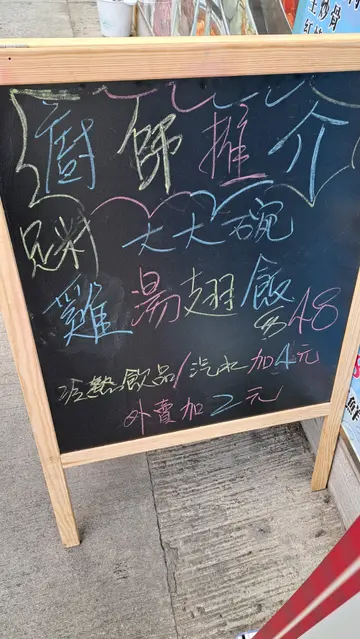 廚師推介
大大碗
雞湯翅飯 $48
冷熱飲品/汽水加4元
外賣加2元